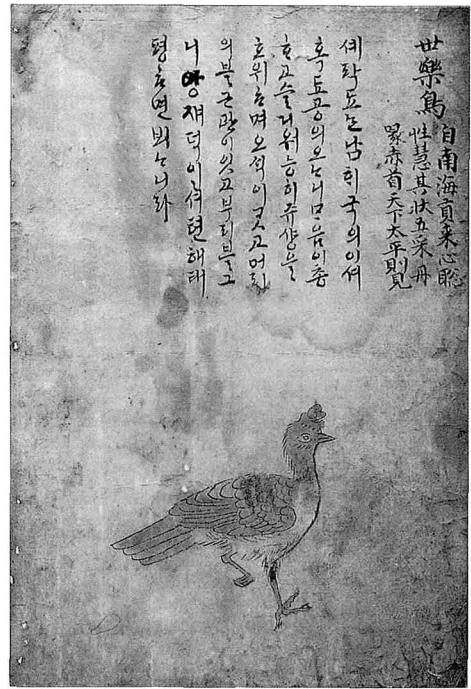 世樂鳥
自南海貢來心聡
性慧其狀五采丹
喙赤首天下太平則見
셰락됴는 남희국의 이셔
혹 됴공의 오느니 ᄆᆞ음이 총
ᄒᆞ고 슬거워 능히 규샹을
호위ᄒᆞ며 오석이 ᄀᆞᆺ고 머리
의 블근 관이 잇고 부리 블그
니 왕쟤 덕이 셔 텬해 태
평ᄒᆞ면 뵈ᄂᆞ니라